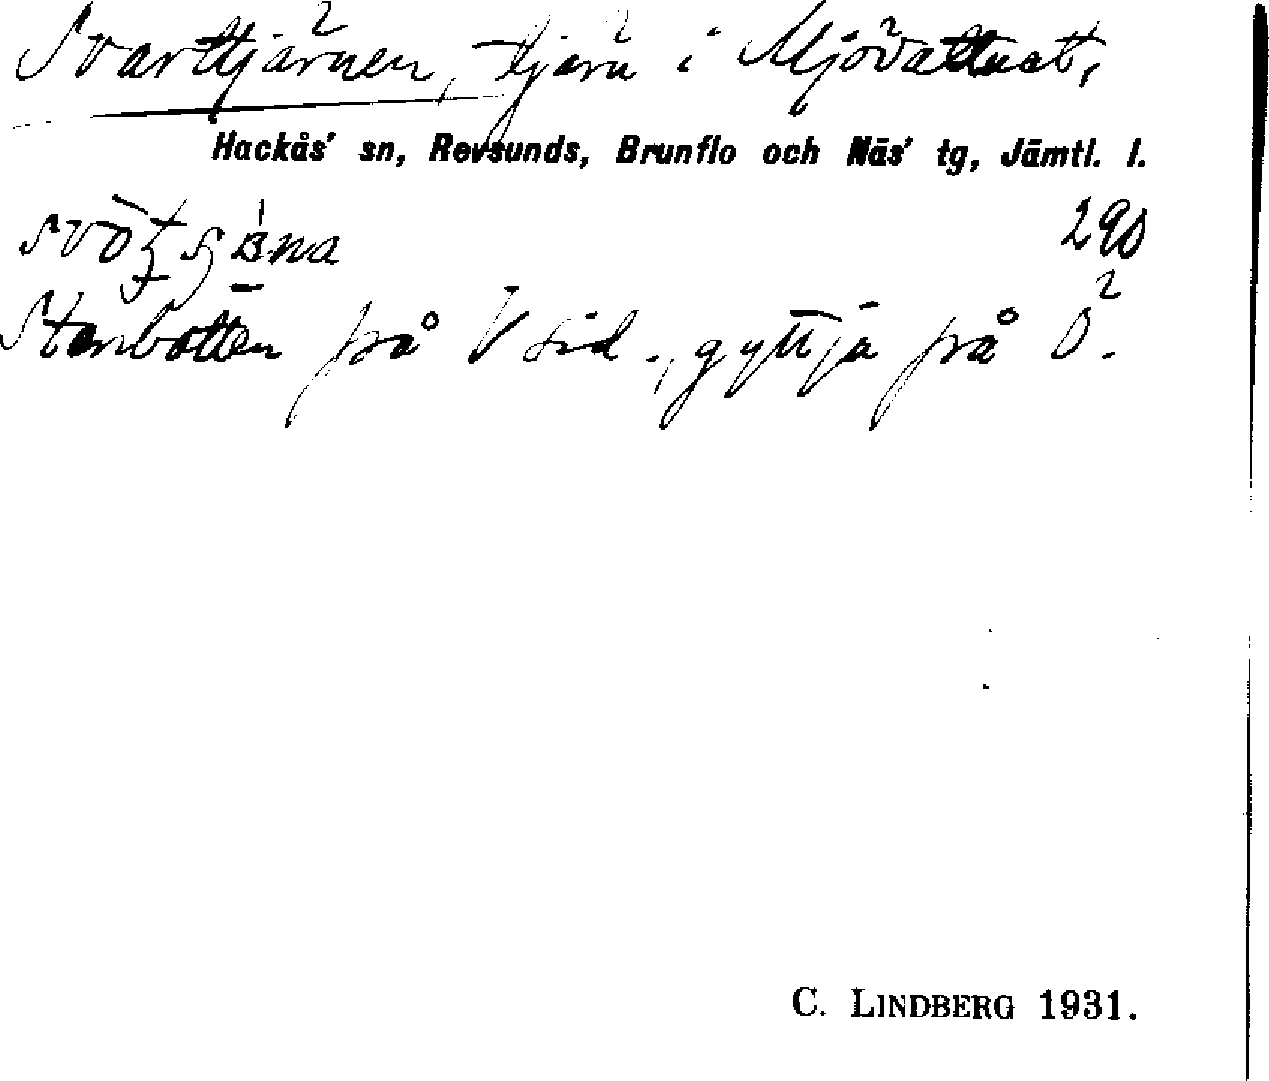 Svarttjärnen, tjärn i Mjövattnet,
Hackås' sn, Revsunds, Brunflo och Näs' tg, Jämtl. l.
290
Stenbotten på V sid., gyttja på Ö.
C. LINDBERG 1931.